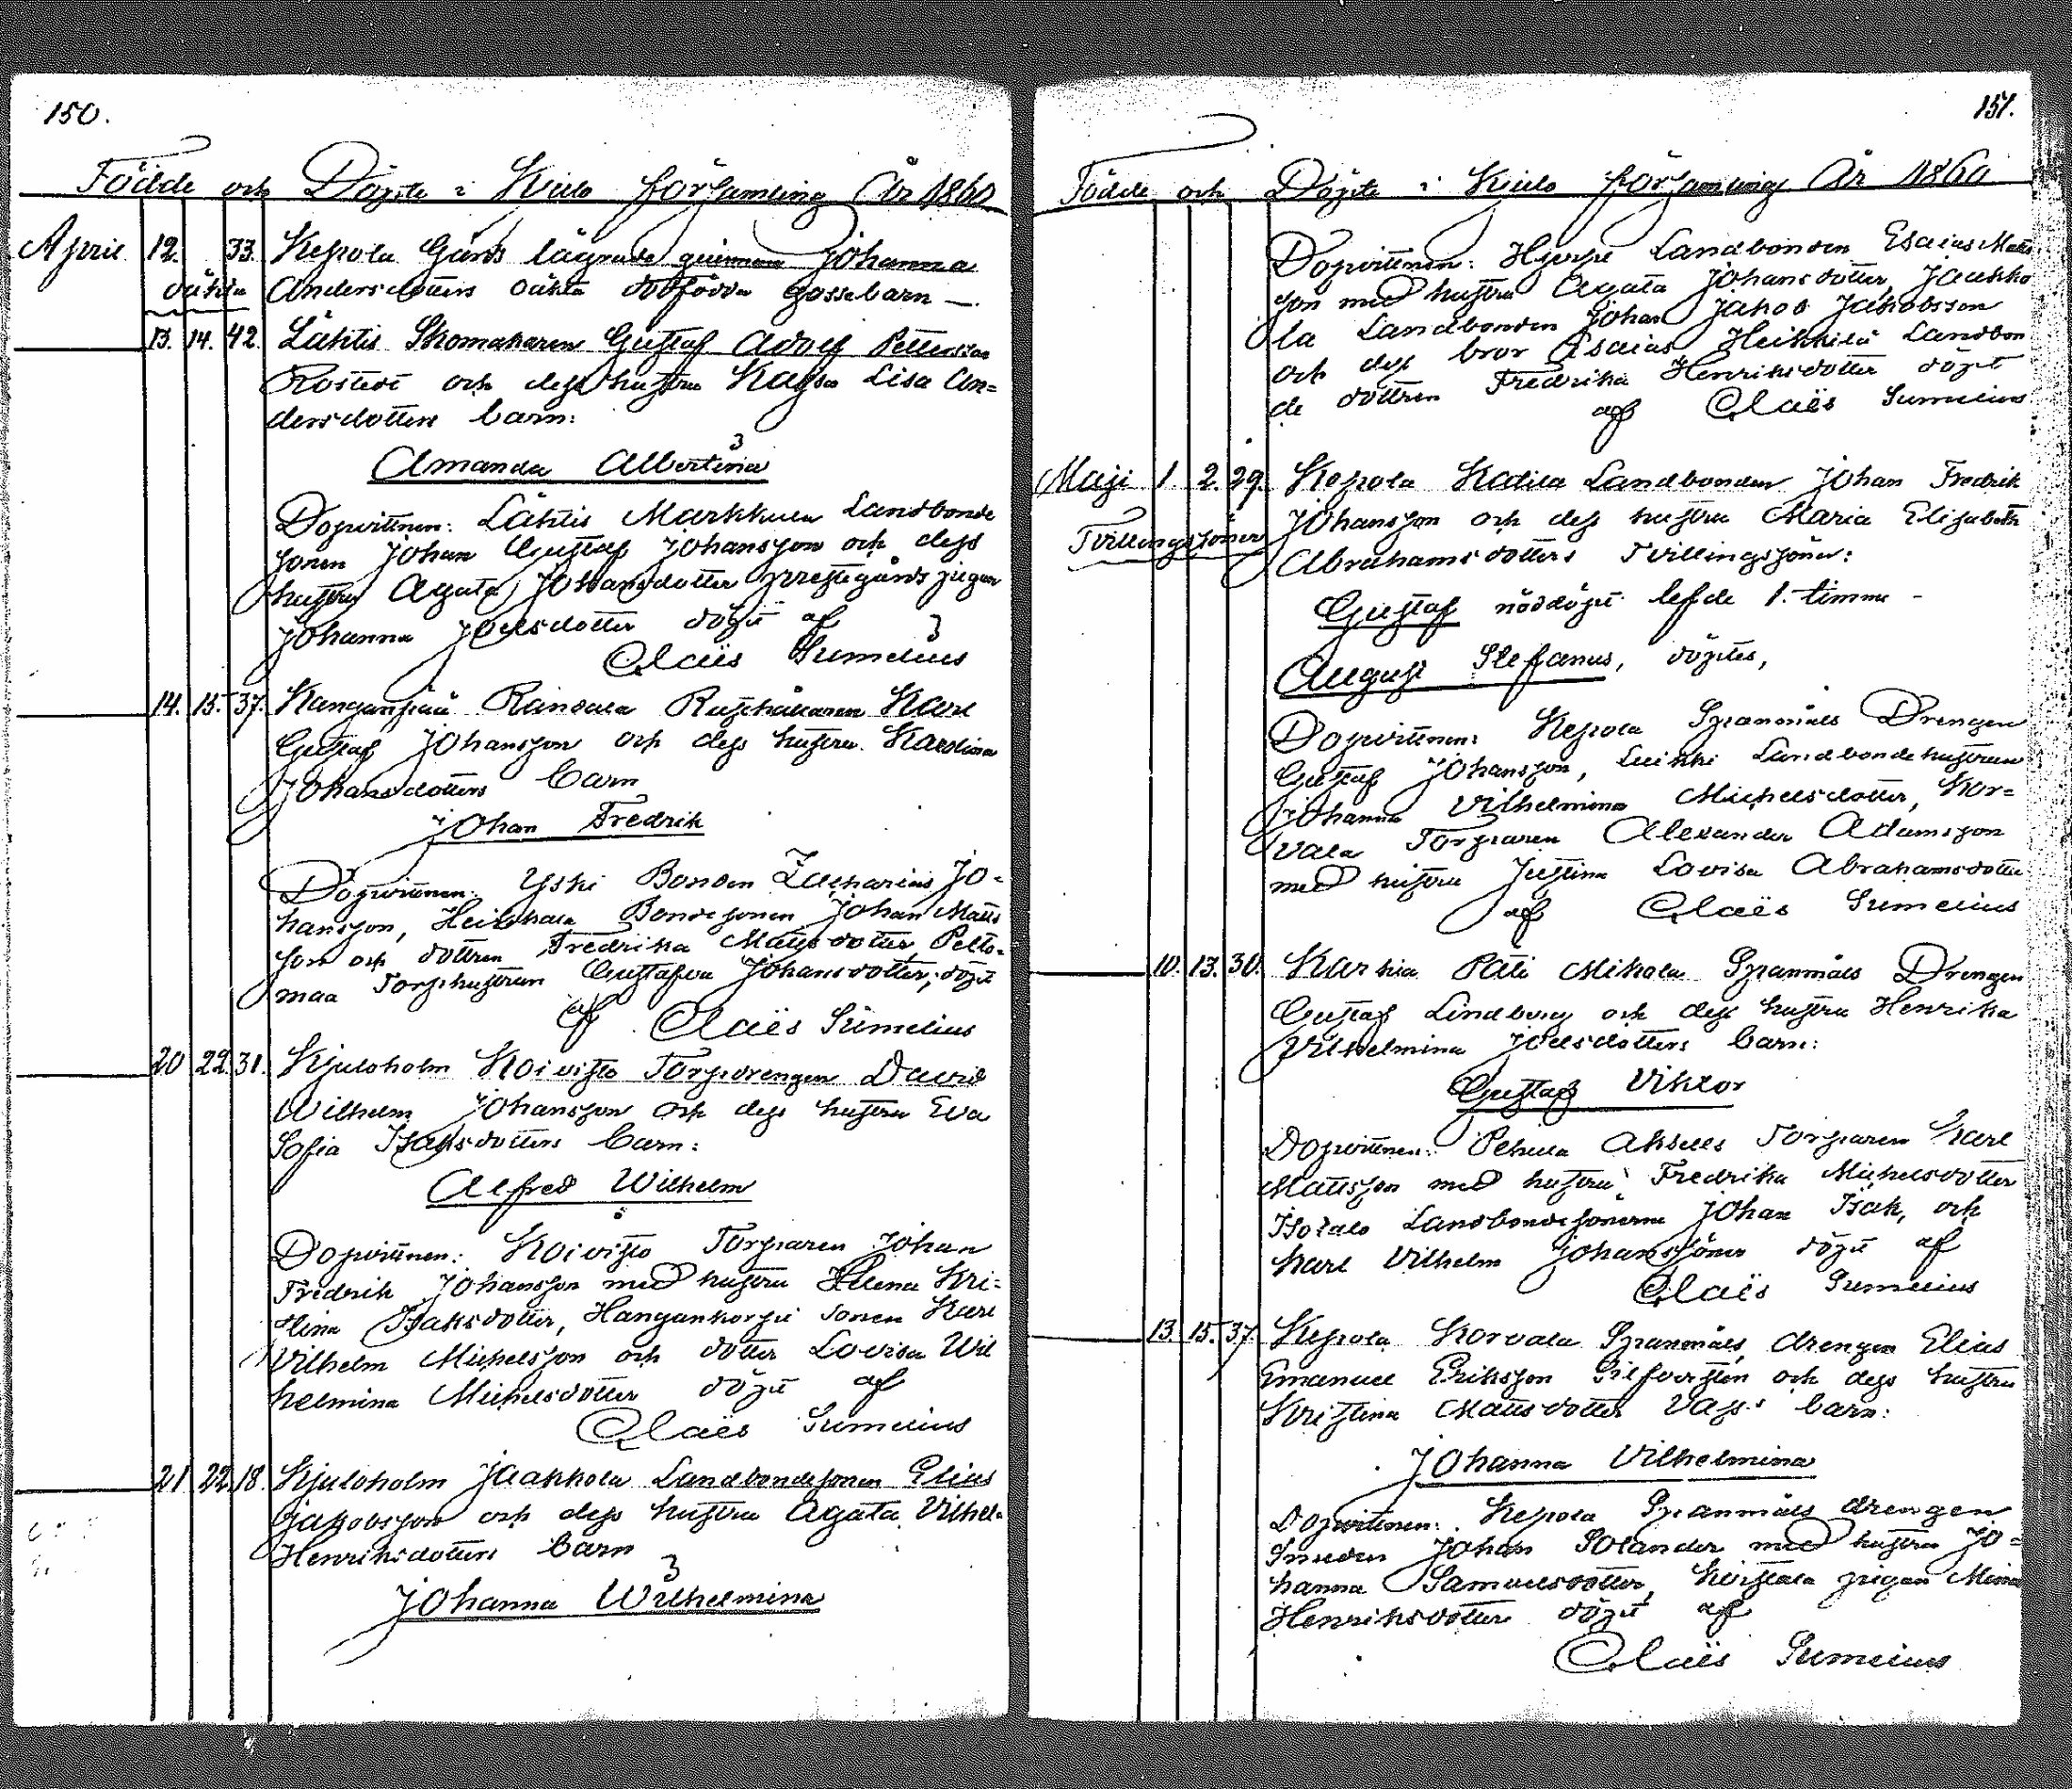 150.
Födde och Döpte i Kiulo församling År 1860
April 12. 33. Kepola Gårds lägrade qvinnan Johanna
oäkta Andersdotters oäkta dödfödda gossebarn —.
13. 14. 42. Lähtis Skomakaren Gustaf Adolf Pettersson
Rostedt och dess hustru Kajsa Lisa An=
dersdotters barn:
Amanda Albertina
Dopvittnen: Lähtis Markkula Landbonde
sonen Johan Gustaf Johansson och dess
hustru Agata Johansdotter prestgårds pigan
Johanna Joelsdotter döpt af
Claës Sumelius
14. 15. 37. Kanganpää Ransala Rusthållaren Karl
Gustaf Johansson och dess hustru Karolina
Johansdotters barn
Johan Fredrik
Dopvittnen: Yski Bonden Zacharias Jo-
hansson, Heikkala Bondesonen Johan Matts
son och dottren Fredrika Mattsdotter, Pelto-
maa Torphustrun Gustafva Johansdotter; döpt
af Claës Sumelius
20 22. 31. Kjuloholm Koivisto Torpdrengen David
Wilhelm Johansson och dess hustru Eva
Sofia Isaksdotters barn:
Alfred Wilhelm
Dopvittnen: Koivisto Torparen Johan
Fredrik Johansson med hustru Helena Kri-
stina Isaksdotter, Hangankorpi sonen Karl
Vilhelm Michelsson och dotter Lovisa Wil
helmina Michelsdotter döpt af
Claës Sumelius
21 22. 18. Kjuloholm Jaakkola Landbondesonen Elias
Jakobsson och dess hustru Agata Vilhel.
Henriksdotters barn
Johanna Wilhelmina
151.
Födde och Döpte i Kiulo församling År 1860
Dopvittnen: Landbonden Esaias Matts
son med hustru Agata Johansdotter, Jaakko
la Landbonden Johan Jakob Jakobsson
och dess bror Esaias Heikkilä Landbon
de dottren Fredrika Henriksdotter döpt
af Claës Sumelius
Maji 1. 2. 29. Kepola Kadila Landbonden Johan Fredrik
Tvillingssöner Johansson och dess hustru Maria Elisabeth
Abrahamsdotters Tvillingssöner:
Gustaf nöddöpt lefde 1. timme -
August Stefanus, döptes,
Dopvittnen: Kepola Spanmåls Drengen
Gustaf Johansson, Luikki Landbondehustrun
Johanna Vilhelmina Michelsdotter, Kor=
vala Torparen Alexander Adamsson
med hustru Justina Lovisa Abrahamsdotter
af Claës Sumelius
10. 13. 30. Karhia Päti Mikola Spanmåls Drengen
Gustaf Lindberg och dess hustru Henrika
Vilhelmina Joelsdotters barn:
Gustaf Viktor
Dopvittnen: Pehula Aksels Torparen Karl
Mattsson med hustru Fredrika Michelsdotter
Isotalo Landbondesönerne Johan Isak, och
Karl Vilhelm Johanssöner döpt af
Claës Sumelius
13. 15. 37. Kepola Korvala Spanmåls drengen Elias
Emanuel Eriksson Silfversten och dess hustru
Kristina Mattsdotter Vass' barn:
Johanna Vilhelmina
Dopvittnen: Kepola Spanmåls drengen
Smeden Johan Solander med hustru Jo=
hanna Samuelsdotter, pigan Mina
Henriksdotter döpt af
Claës Sumelius